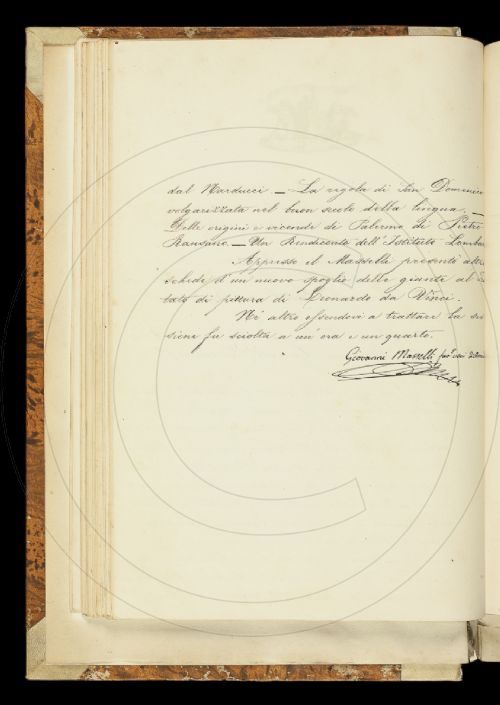 dal Narducci. — La regola di San Domenico
volgarizzata nel buon secolo della lingua. —
Delle origini e vicende di Palermo di Pietro
Ransano. — Un Rendiconto dell'Istituto Lombar
Appresso il Masselli presentò altre
schede d'un nuovo spoglio delle giunte al
tato di pittura di Leonardo da Vinci.
Né altro essendovi a trattare la ses
sione fu sciolta a un'ora e un quarto.
Giovanni Masselli